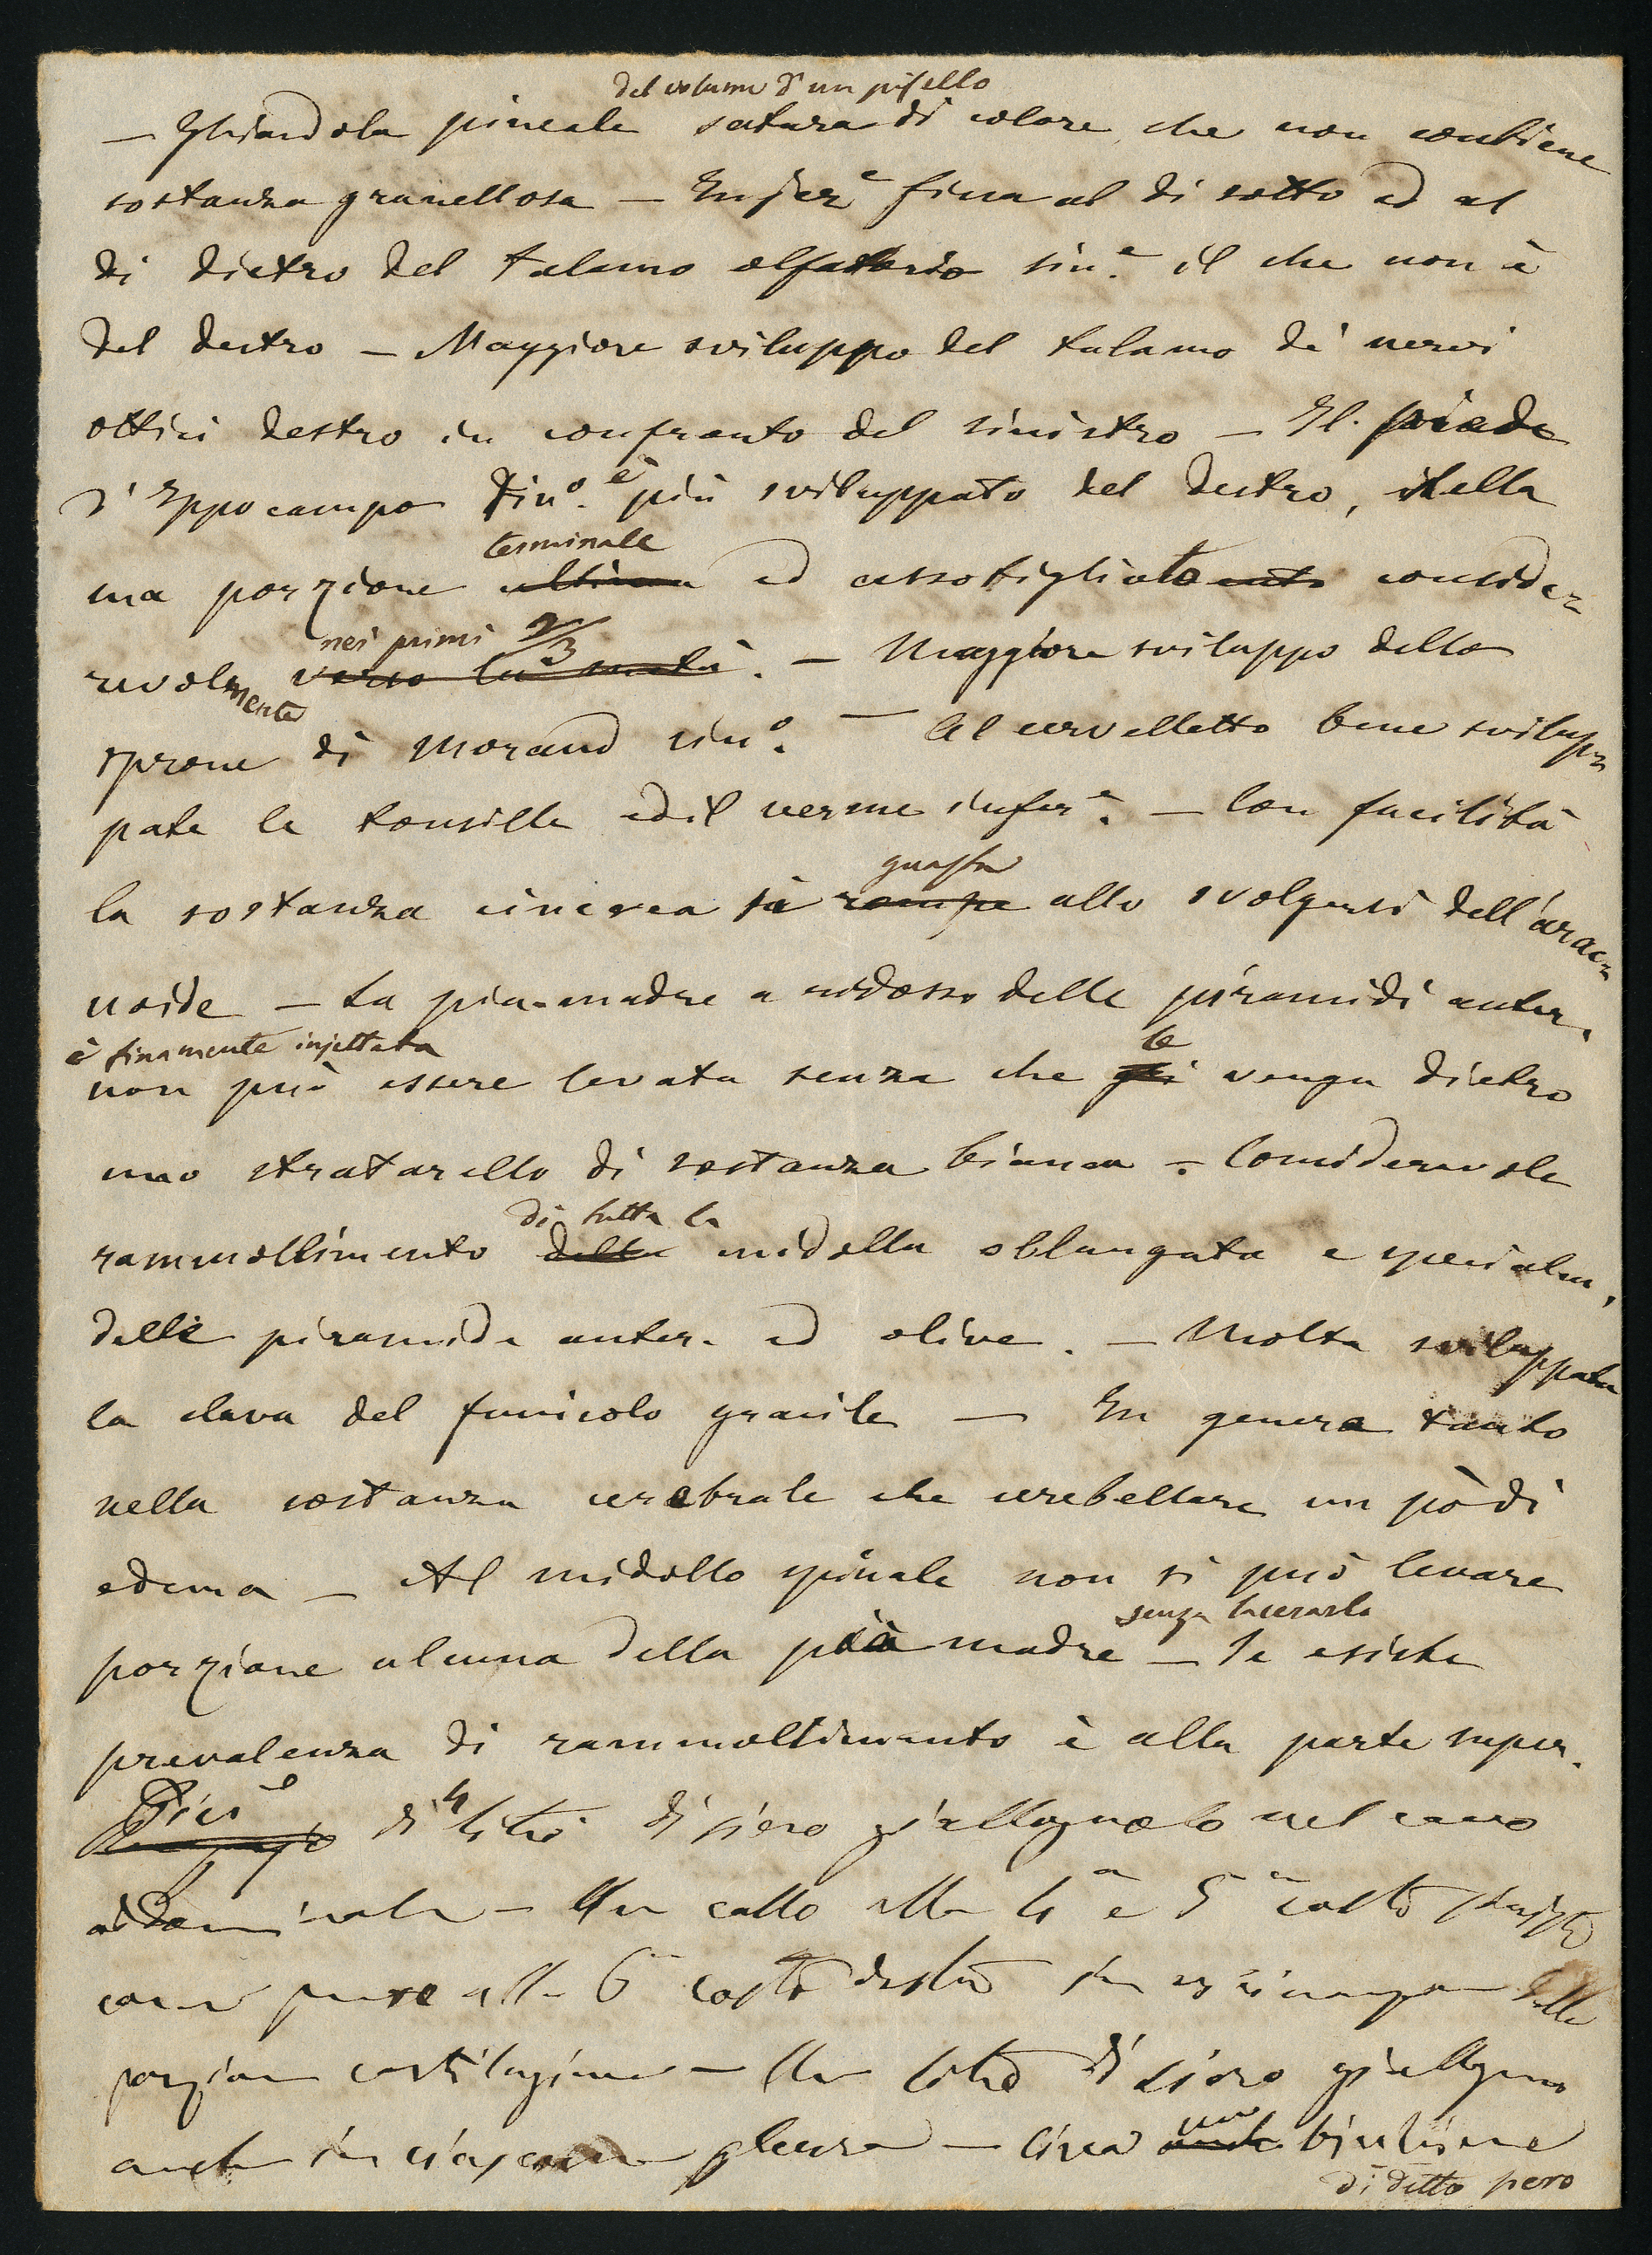 del volume d'un pisello
— Ghiandola pineale satura di colore, che non contiene
sostanza granellosa — fina al di sotto ed al
di dietro del talamo olfattorio sin.e il che non è
del destro — Maggiore sviluppo del talamo de' nervi
ottici destro in confronto del sinistro — Il piede
d'Ippocampo sin.o è più sviluppato del destro, nella
terminale
sua porzione ultima ed assottigliato conside=
nei primi 2/3
revolmente verso la metà. — Maggiore sviluppo dello
sprone di Morand sin.o — Al cervelletto bene svilup=
pate le tonsille ed il verme infer.e — Con facilità
guasta
la sostanza cinerea si rompe allo svolgersi dell'arac=
noide — La pia-madre a ridosso delle piramidi anter.
è finamente injettata le
non può essere levata senza che gli venga dietro
uno stratarello di sostanza bianca — Considerevole
di tutta la
rammollimento della midolla oblungata e specialm.
delle piramide anter. ed olive. — Molto sviluppata
la clava del funicolo gracile — In genere tanto
nella sostanza cerebrale che cerebellare un pò di
edema — Al midollo spinale non si può levare
senza lacerarla
porzione alcuna della pia madre — Se esiste
prevalenza di rammollimento è alla parte super.
Più di 4 litri di siero giallognolo nel cavo
addominale — Un callo alla 4a e 5a costa
come pure alla 6a costa destra in vicinanza della
porzione cartilaginea — Un litro di siero giallognolo
anche in ciascuna pleura — Circa un bicchiere
di detto siero